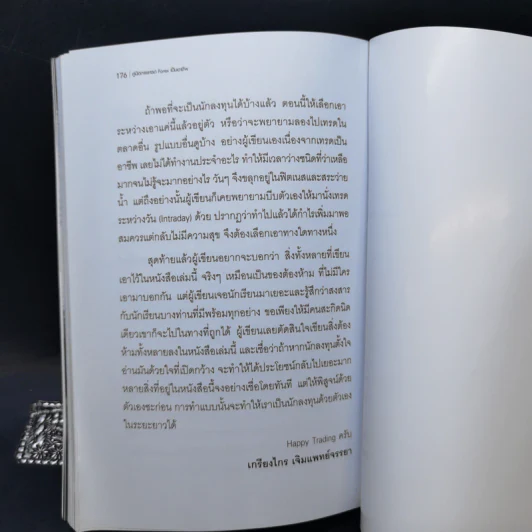 176 | คู่มือเทรดเดอร์ Forex มืออาชีพ
ถ้าพอที่จะเป็นนักลงทุนได้บ้างแล้ว ตอนนี้ให้เลือกเอา
ระหว่างเอาแค่นี้แล้วอยู่ตัว หรือว่าจะพยายามลองไปเทรดใน
ตลาดอื่น รูปแบบอื่นดูบ้าง อย่างผู้เขียนเองเนื่องจากเทรดเป็น
อาชีพ เลยไม่ได้ทำงานประจำอะไร ทำให้มีเวลาว่างชนิดที่ว่าเหลือ
มากจนไม่รู้จะมากอย่างไร วันๆ จึงขลุกอยู่ในฟิตเนสและสระว่าย
น้ำ แต่ถึงอย่างนั้นผู้เขียนก็เคยพยายามบีบตัวเองให้มานั่งเทรด
ระหว่างวัน (Intraday) ด้วย ปรากฏว่าทำไปแล้วได้กำไรเพิ่มมาพอ
สมควรแต่กลับไม่มีความสุข จึงต้องเลือกเอาทางใดทางหนึ่ง
สุดท้ายแล้วผู้เขียนอยากจะบอกว่า สิ่งทั้งหลายที่เขียน
เอาไว้ในหนังสือเล่มนี้ จริงๆ เหมือนเป็นของต้องห้าม ที่ไม่มีใคร
เอามาบอกกัน แต่ผู้เขียนเจอนักเรียนมาเยอะและรู้สึกว่าสงสาร
กับนักเรียนบางท่านที่มีพร้อมทุกอย่าง ขอเพียงให้มีคนสะกิดนิด
เดียวเขาก็จะไปในทางที่ถูกได้ ผู้เขียนเลยตัดสินใจเขียนสิ่งต้อง
ห้ามทั้งหลายลงในหนังสือเล่มนี้ และเชื่อว่าถ้าหากนักลงทุนตั้งใจ
อ่านมันด้วยใจที่เปิดกว้าง จะทำให้ได้ประโยชน์กลับไปเยอะมาก
หลายสิ่งที่อยู่ในหนังสือนี้จงอย่างเชื่อโดยทันที แต่ให้พิสูจน์ด้วย
ตัวเองซะก่อน การทำแบบนั้นจะทำให้เราเป็นนักลงทุนด้วยตัวเอง
ในระยะยาวได้
Happy Trading ครับ
เกรียงไกร เจิมแพทย์จรรยา